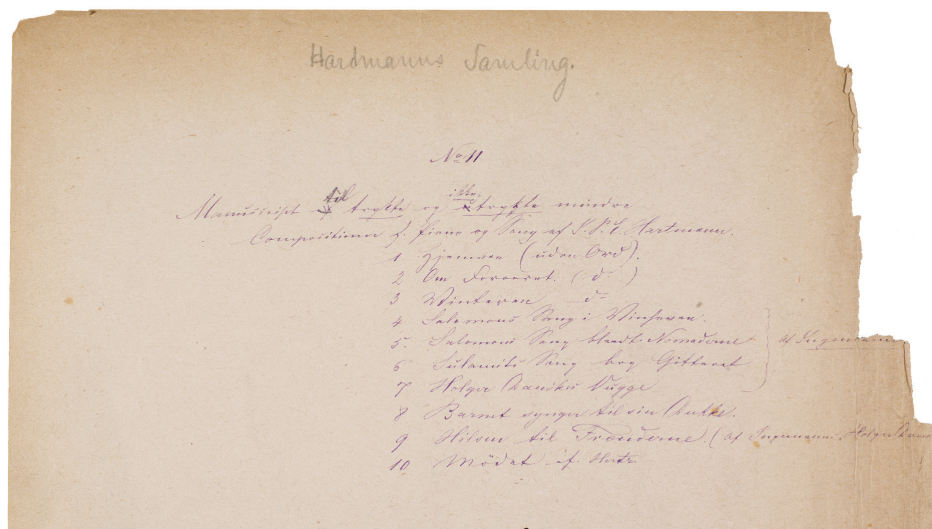 Hartmanns Samling.
No 11
Manuscript til trykte og ikke trykte mindre
Compositioner f. Piano og Sang af J.P.E. Hartmann.
1 Hjemvee (uden Ord).
2 Om Foraaret. (d )
3 Vinteren d-
4 Salomons Sang i Vinhaven.
5. Salomons Sang blandt Nomaderne af Ingemann
6 Sulamits Sang bag Gitteret
7 Holger Danskes Vugge
8 Barnet synger til sin Dukke.
9 Hilsen til Frænderne. (af Ingemann, Holger Danske
10 Mödet af Hertz